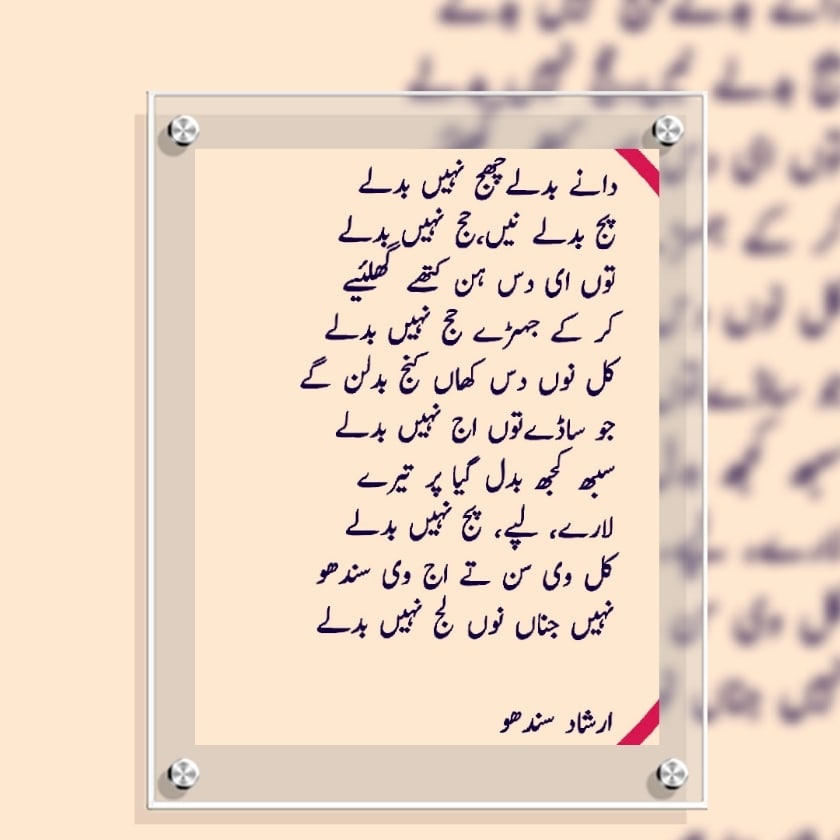 دانے بدلے چھج نہیں بدلے
پج بدلے نیں، حج نہیں بدلے
توں ای دس ہن کتھے گھلئیے
کر کے جہڑے حج نہیں بدلے
کل نوں دس کھاں کنج بدلن گے
جو ساڈے توں اج نہیں بدلے
سبھ کجھ بدل گیا پر تیرے
لارے، لپے، پج نہیں بدلے
کل وی سن تے اج وی سندھو
نہیں جناں نوں لج نہیں بدلے
ارشاد سندھو